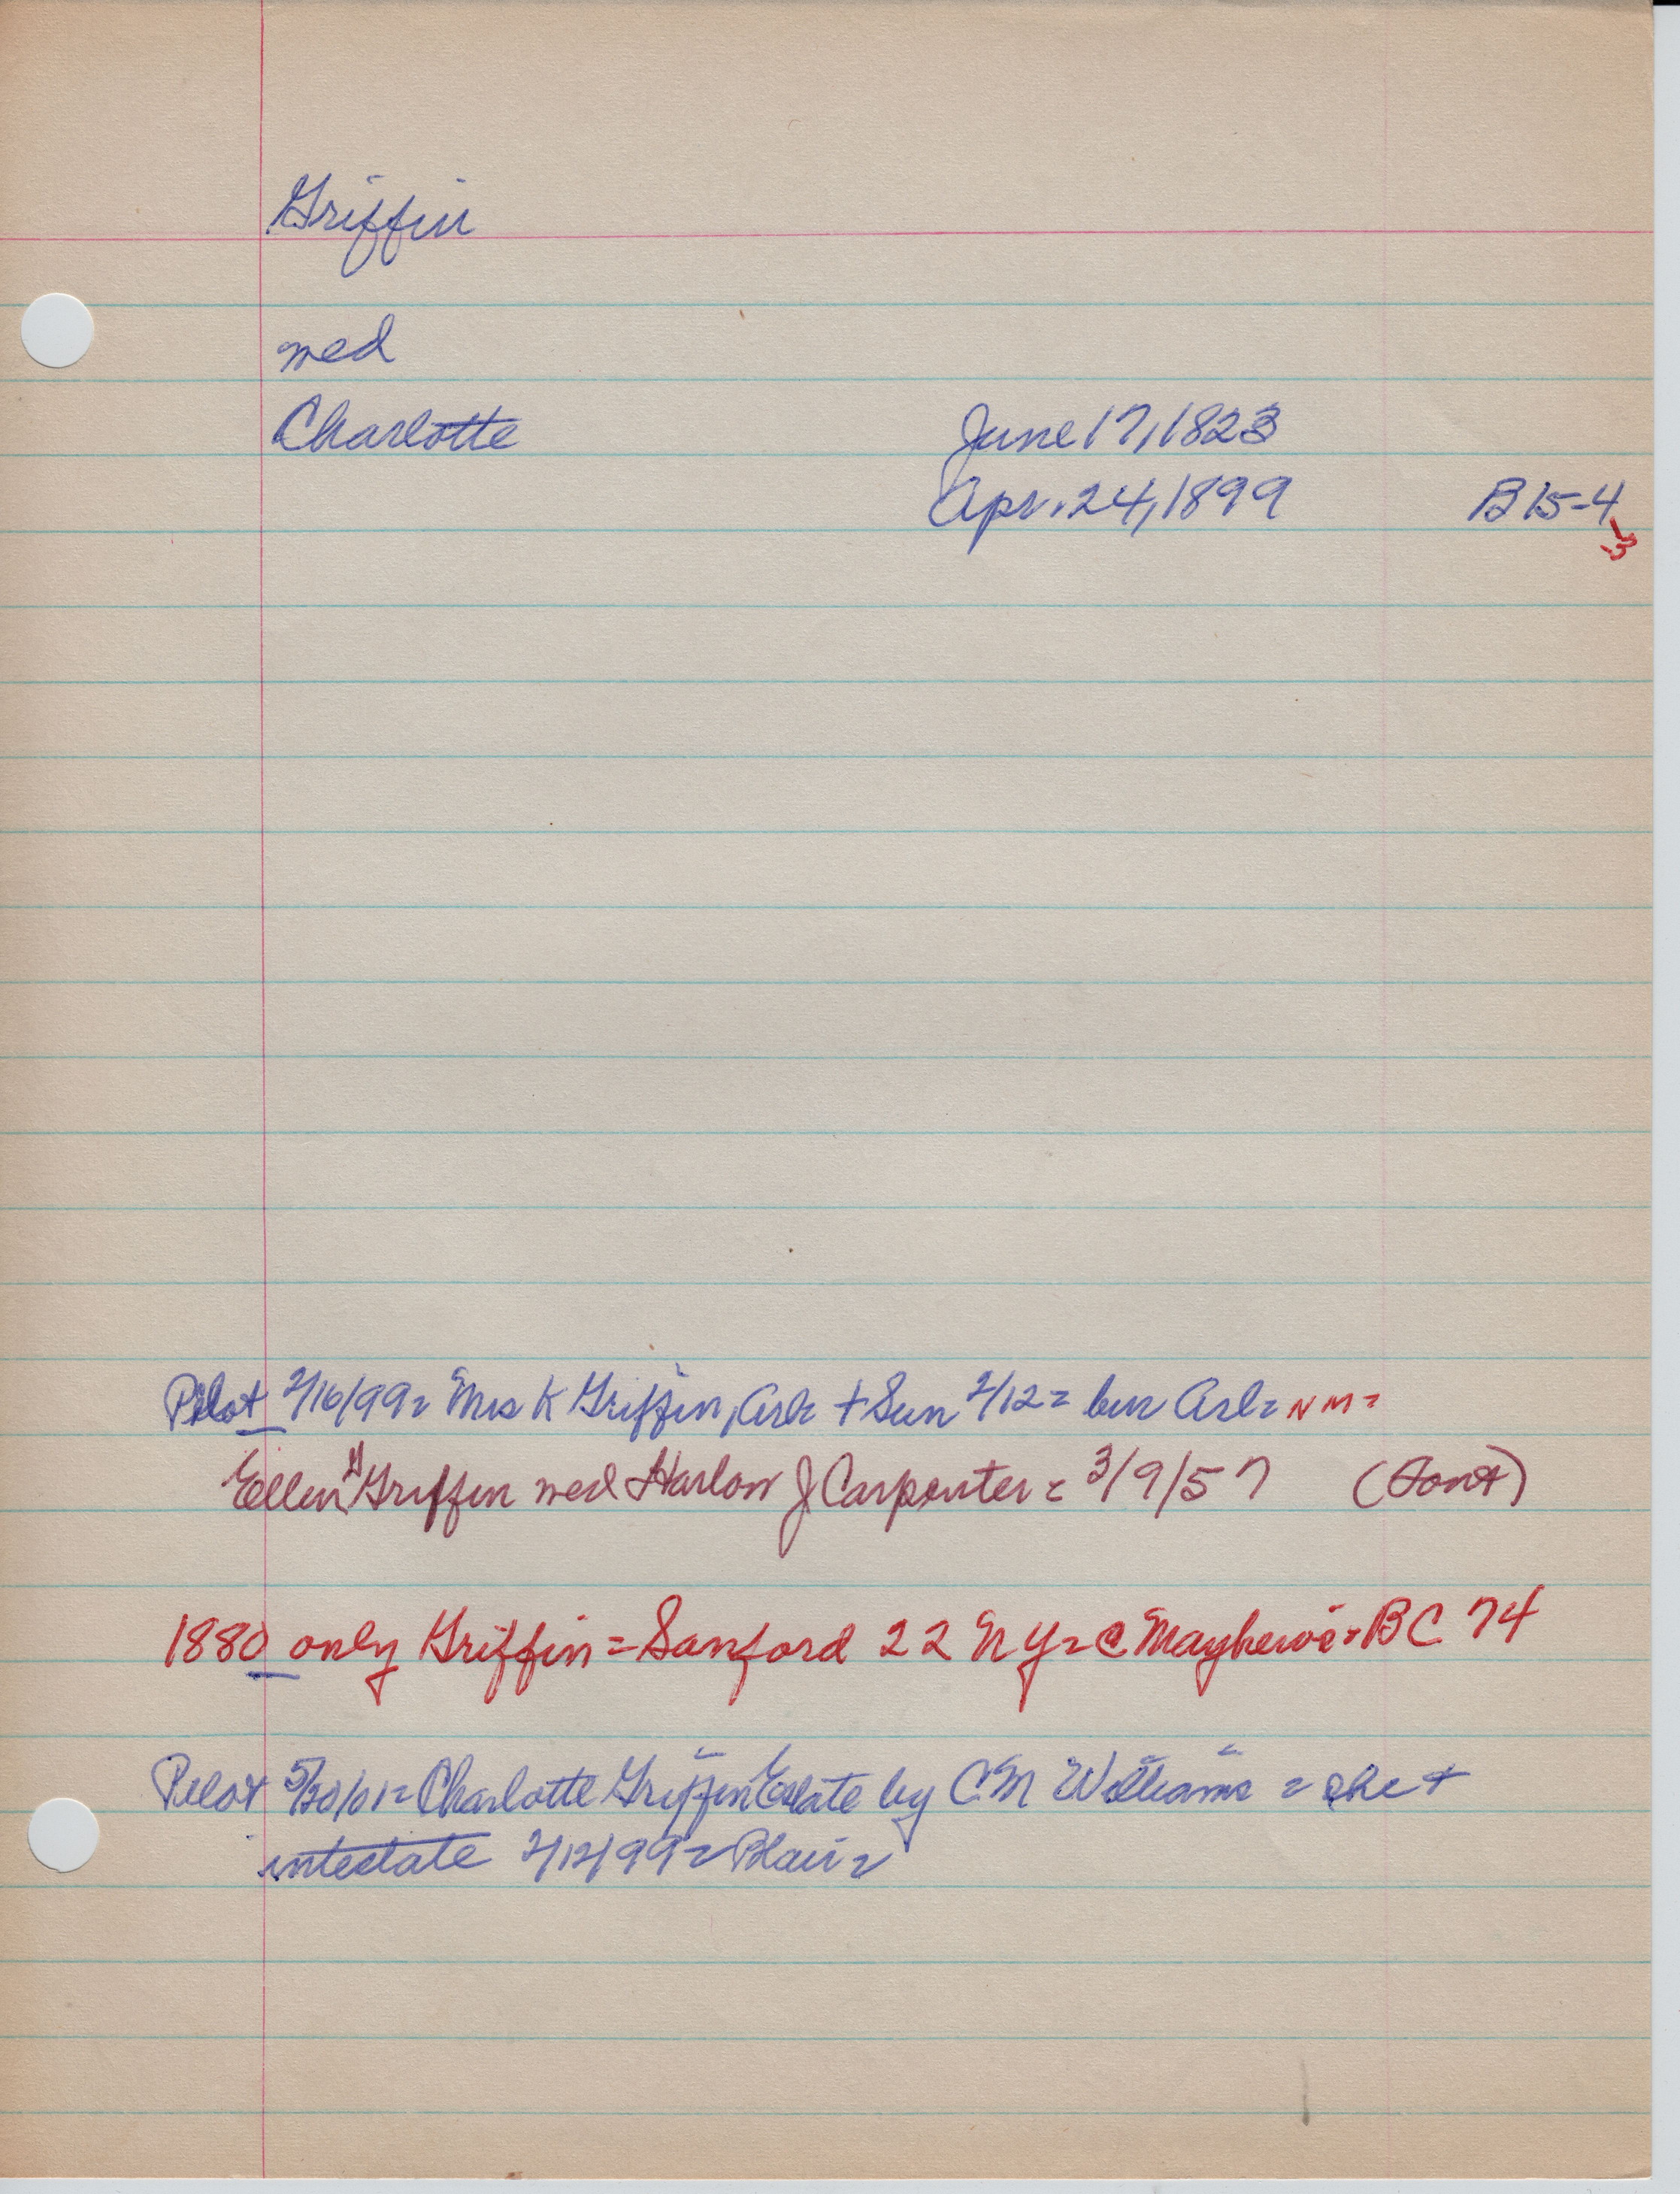 Griffin
wed
Charlotte June 17, 1823
Apr. 24, 1899 B 15-4
Pilot 2/16/99 = Mrs K Griffin, Arl = + Sun 2/12 = bur Arl = N M =
Ellen Griffin wed Harlow J Carpenter = 3/9/57 (Font)
1880 only Griffin = Sanford 22 N Y = c Mayhew's = BC 74
Pilot 5/30/01 = Charlotte Griffin Estate by C M Williams = she +
intestate 2/12/99 = Blair =